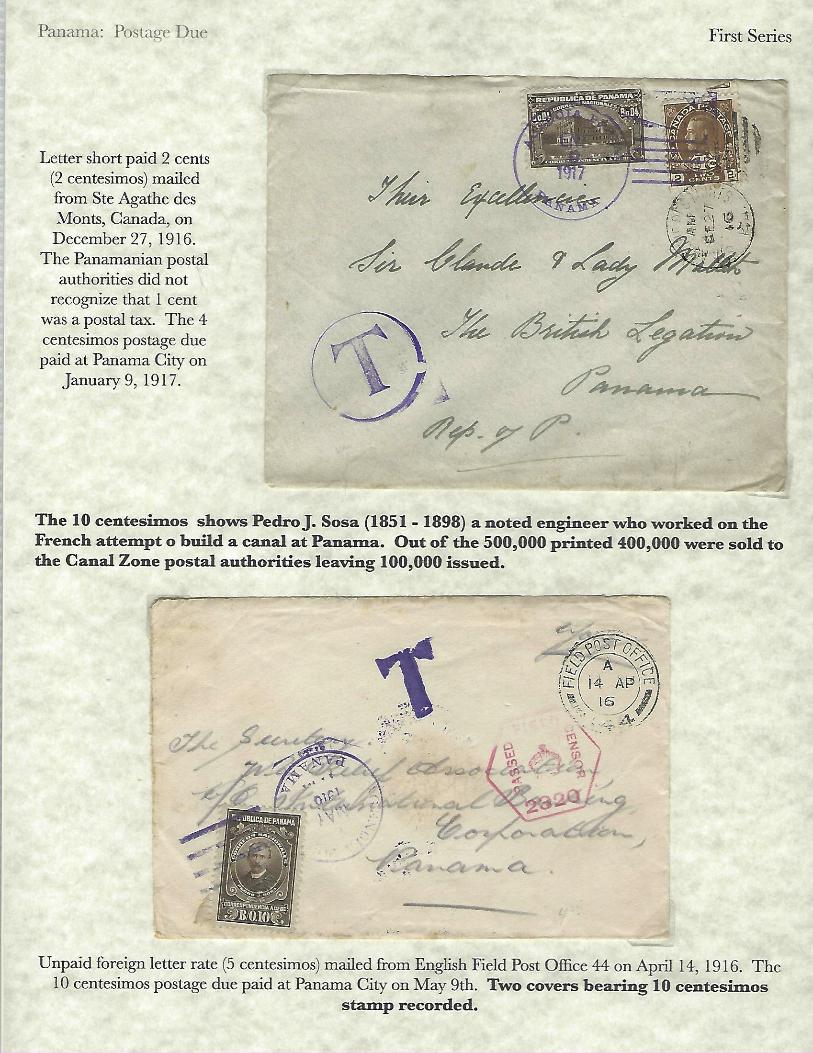 Panama: Postage Due
First Series
Letter short paid 2 cents
(2 centesimos) mailed
from Ste Agathe des
Monts, Canada, on
December 27, 1916.
The Panamanian postal
authorities did not
recognize that 1 cent
was a postal tax. The 4
centesimos postage due
paid at Panama City on
January 9, 1917.
REPUBLICA DE PANAMA
CANADA POSTAGE
2 CENTS 2
1917
PANAMA
AM
DE 27
16
Their Excellencies
Sir Claude & Lady Mallet
The British Legation
Panama
Rep. of P.
T
The 10 centesimos shows Pedro J. Sosa (1851 - 1898) a noted engineer who worked on the
French attempt o build a canal at Panama. Out of the 500,000 printed 400,000 were sold to
the Canal Zone postal authorities leaving 100,000 issued.
T
FIELD POST OFFICE
A
14 AP
16
44
PASSED CENSOR
2820
The Secretary
Association
c/o International Banking
Corporation,
Panama.
PANAMA
MAY
1916
REPUBLICA DE PANAMA
CORREOS NACIONALES
B 0.10
Unpaid foreign letter rate (5 centesimos) mailed from English Field Post Office 44 on April 14, 1916. The
10 centesimos postage due paid at Panama City on May 9th. Two covers bearing 10 centesimos
stamp recorded.